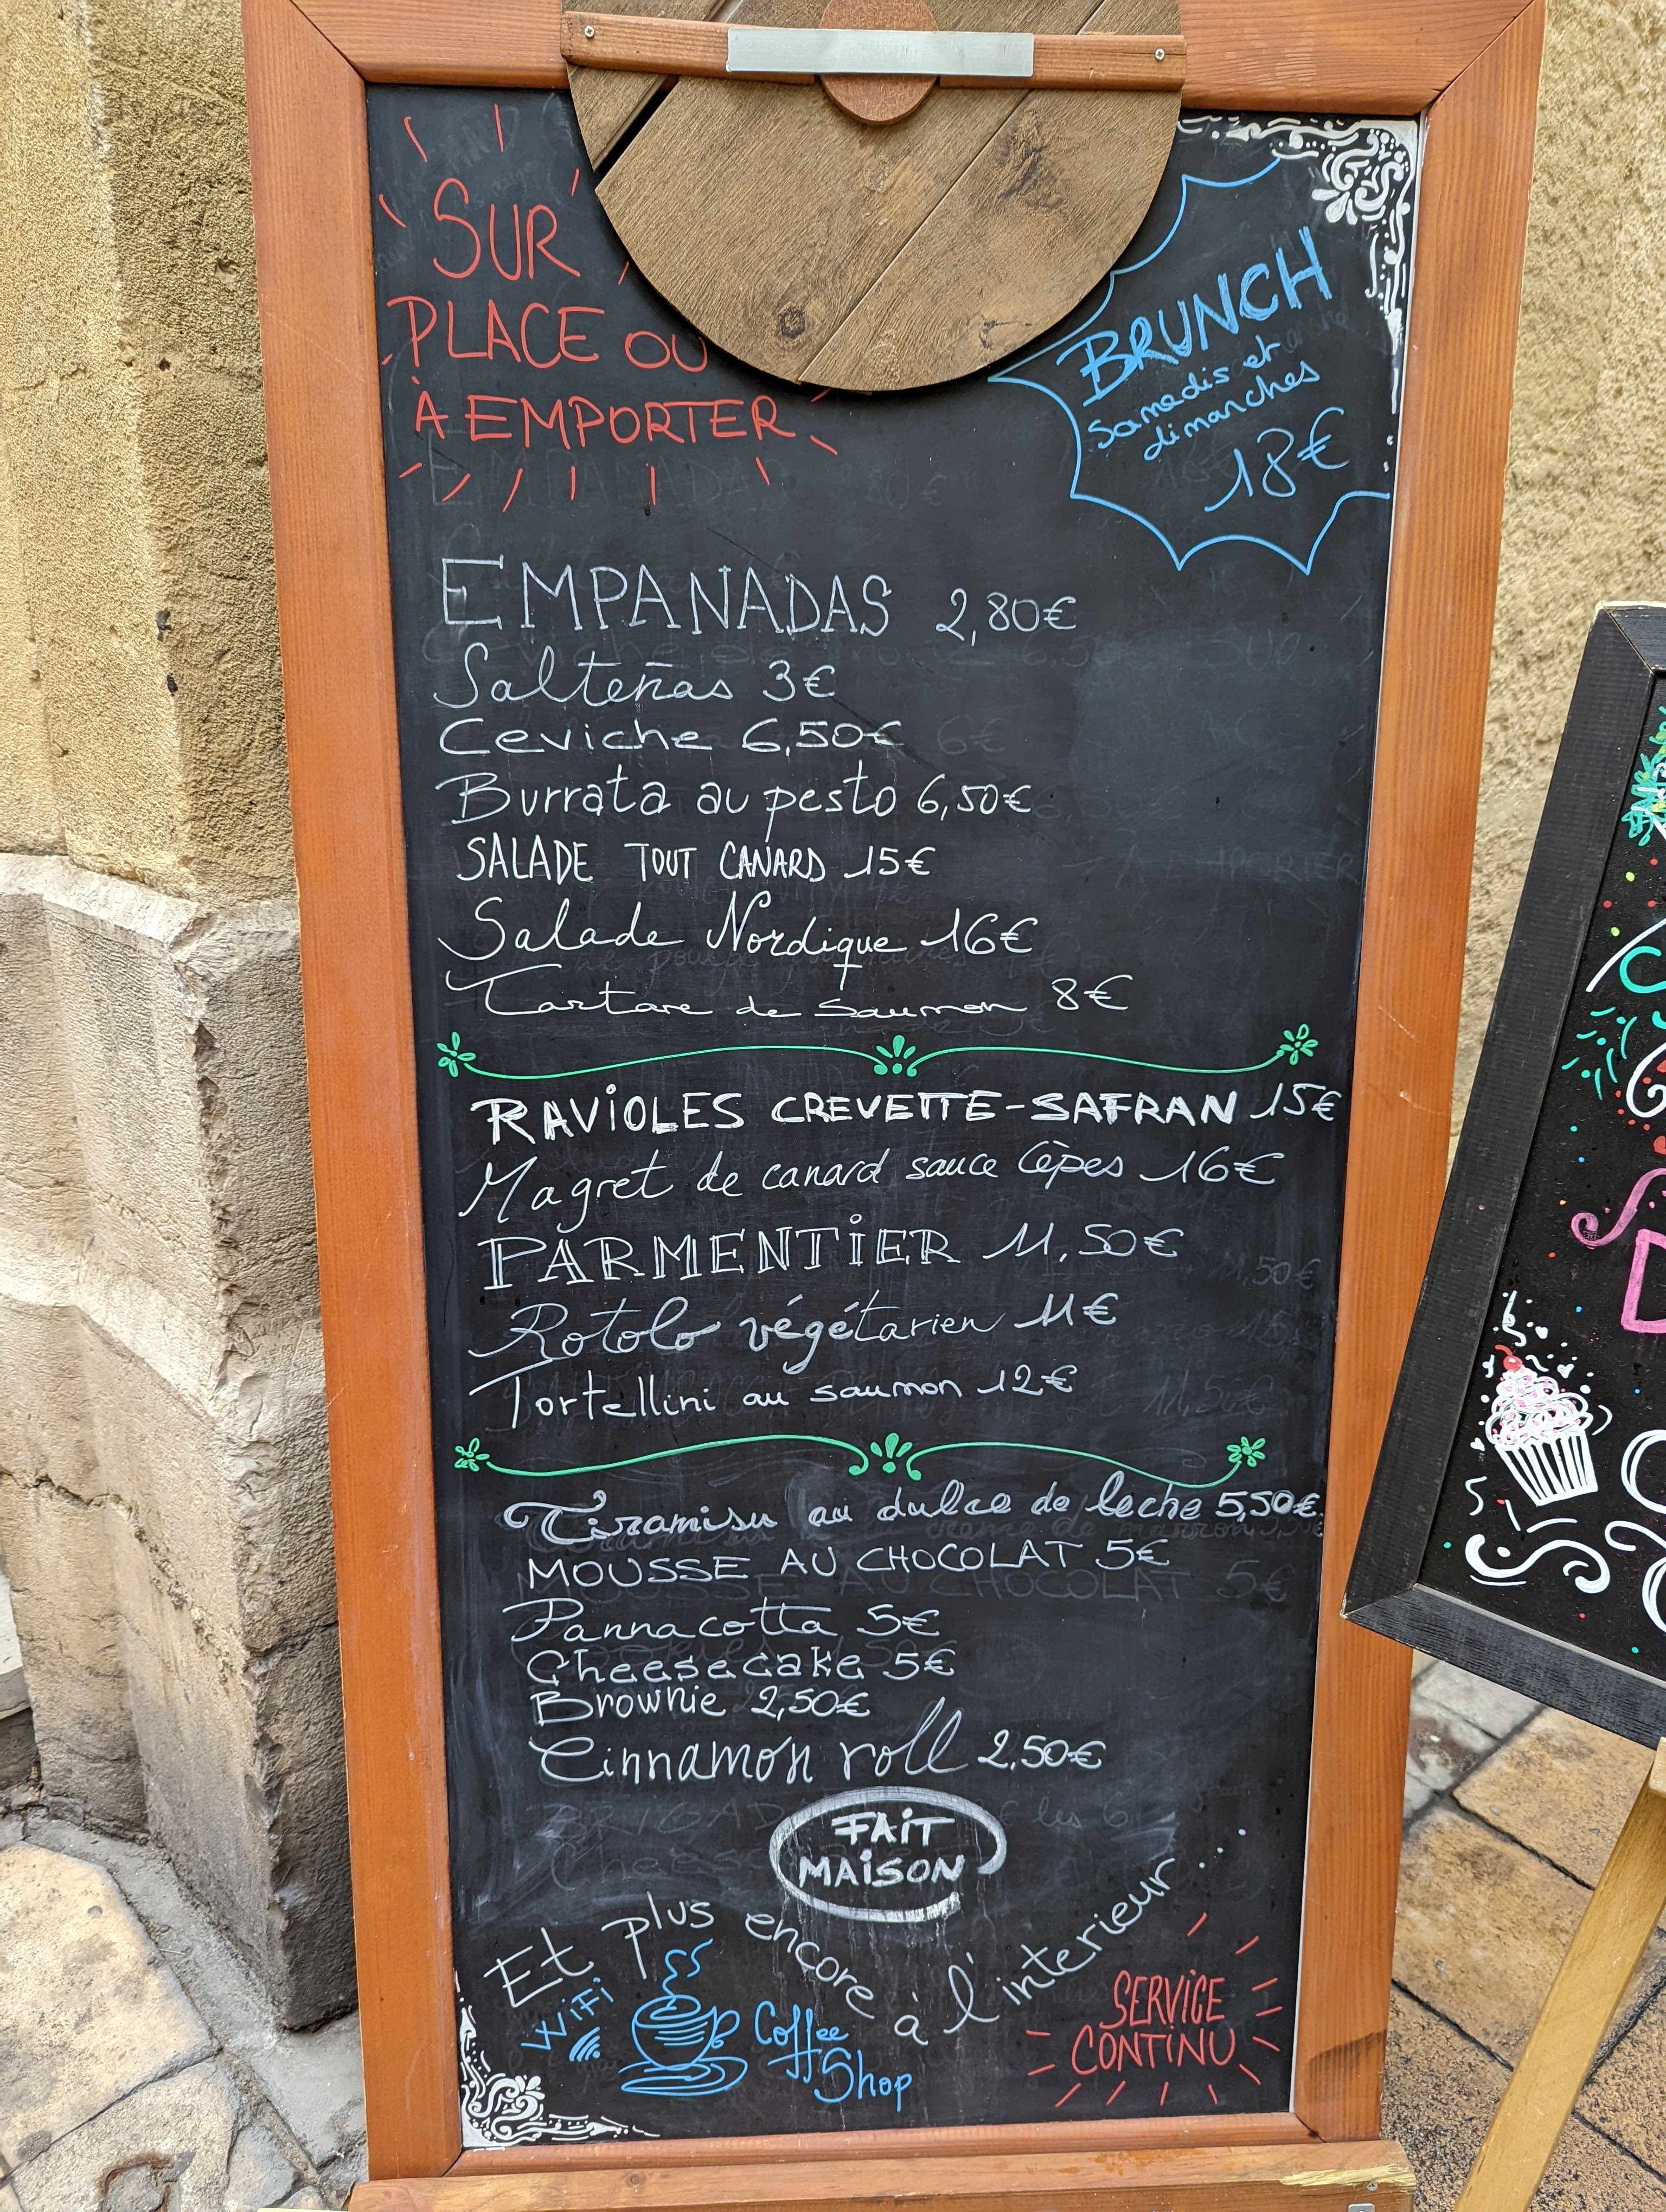 SUR
PLACE OU
À EMPORTER
BRUNCH
samedis et
dimanches
18€
EMPANADAS 2,80€
Salteñas 3€
Ceviche 6,50€
Burrata au pesto 6,50€
SALADE TOUT CANARD 15€
Salade Nordique 16€
Tartare de saumon 8€
RAVIOLES CREVETTE-SAFRAN 15€
Magret de canard sauce Cèpes 16€
PARMENTIER 11,50€
Rotolo végétarien 11€
Tortellini au saumon 12€
Tiramisu au dulce de leche 5,50€
MOUSSE AU CHOCOLAT 5€
Panna cotta 5€
Cheesecake 5€
Brownie 2,50€
Cinnamon roll 2,50€
FAIT
MAISON
Et plus encore à l'interieur...
WiFi
Coffee
Shop
SERVICE
CONTINU